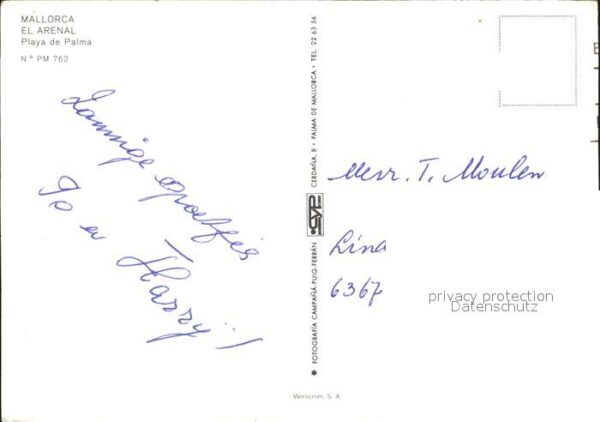 MALLORCA
EL ARENAL
Playa de Palma
N.° PM 762
Zonnige groetjes
Jo en
Harry!
FOTOGRAFÍA CAMPAÑÁ-PUIG-FERRÁN
CERDAÑA, 8 • PALMA DE MALLORCA • TEL. 22 63 56
Mevr. T. Moulen
Lina
6367
privacy protection
Datenschutz
S. A.